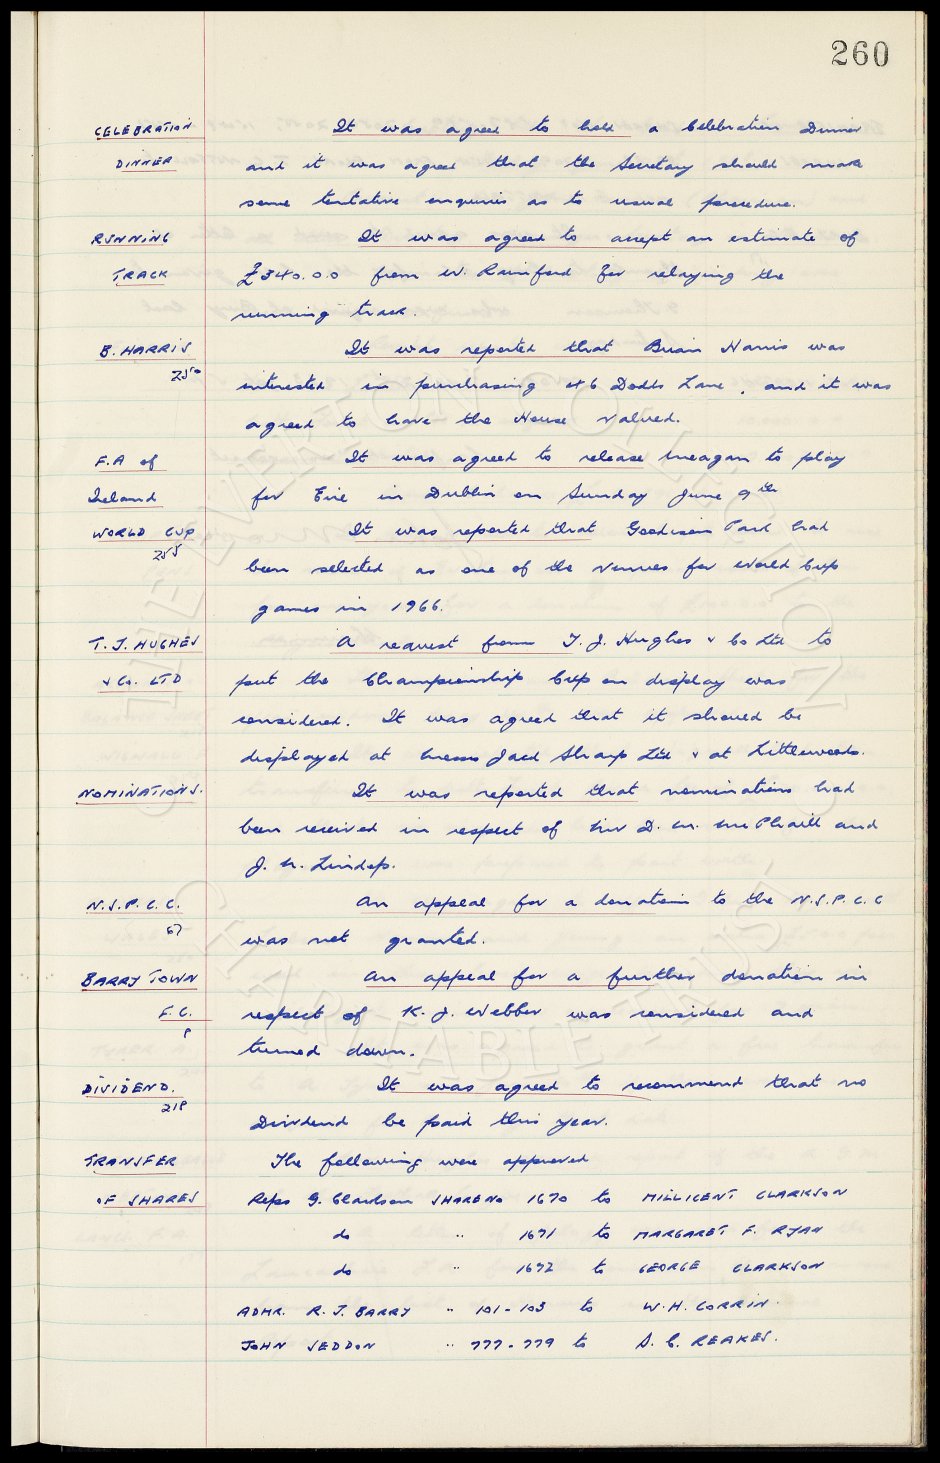 260
CELEBRATION It was agreed to hold a Celebration Dinner
DINNER and it was agreed that the Secretary should make
some tentative enquiries as to usual procedure.
RUNNING It was agreed to accept an estimate of
TRACK £340.0.0 from W. Rainford for relaying the
running track.
B. HARRIS It was reported that Brian Harris was
250 interested in purchasing 46 Dodds Lane, and it was
agreed to have the House valued.
F.A of It was agreed to release Meagan to play
Ireland for Eire in Dublin on Sunday June 9th
WORLD CUP It was reported that Goodison Park had
255 been selected as one of the Venues for World Cup
games in 1966.
T. J. HUGHES A request from T. J. Hughes & Co Ltd to
& Co. LTD put the Championship Cup on display was
considered. It was agreed that it should be
displayed at Messrs Jack Sharp Ltd & at Littlewoods.
NOMINATIONS. It was reported that nominations had
been received in respect of D. M. McPhaill and
J. M. Lindop.
N.S.P.C.C. An appeal for a donation to the N.S.P.C.C
67 was not granted.
BARRY TOWN An appeal for a further donation in
F.C. respect of K. J. Webber was considered and
8 turned down.
DIVIDEND. It was agreed to recommend that no
218 Dividend be paid this year.
TRANSFER The following were approved
OF SHARES Reps G. Clarkson SHARE No 1670 to MILLICENT CLARKSON
do " 1671 to MARGARET F. RYAN
do " 1672 to GEORGE CLARKSON
ADMR. R. J. BARRY " 101-103 to W. H. CORRIN.
JOHN SEDDON " 777-779 to A. C. REAKES.
THE EVERTON COLLECTION
CHARITABLE TRUST